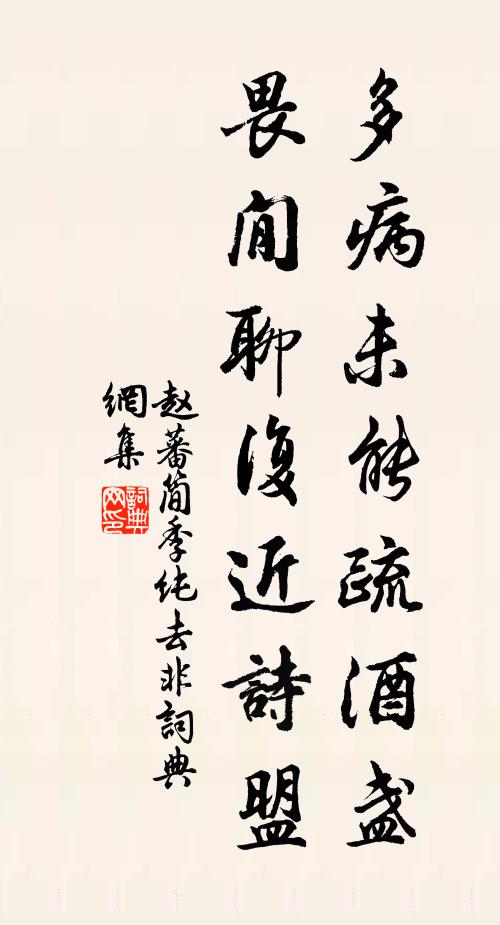 多病未能疏酒盏
畏閒聊復近詩盟
赵蕃简季纯去非詞典
網集
詞典
网印